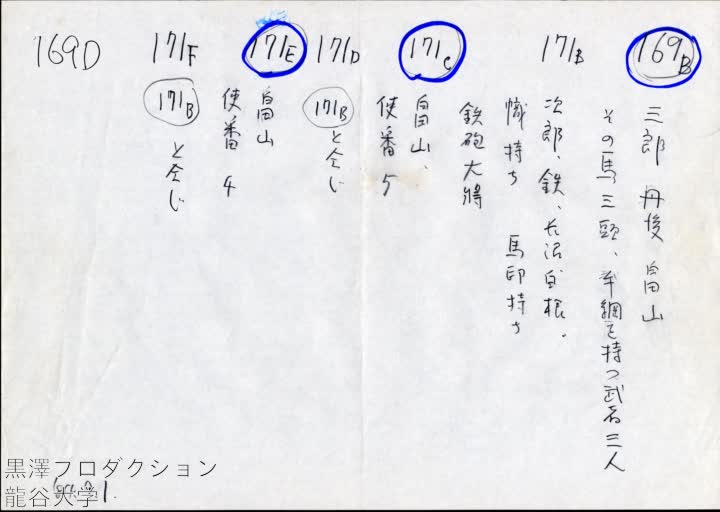 169B
三郎 丹後 畠山
その馬三頭、手綱を持つ武者三人
171B
次郎、鉄、長沼、白根、
幟持ち 馬印持ち
鉄砲大将
171C
畠山、
使番 5
171D
171B と仝じ
171E
畠山
使番 4
171F
171B と仝じ
169D
黒澤プロダクション
龍谷大学